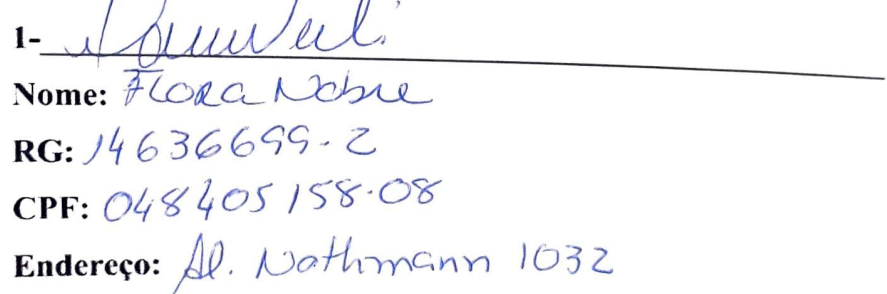 1-
Nome: Flora Nobre
RG: 14636699-2
CPF: 048405158-08
Endereço: Al. Nothmann 1032